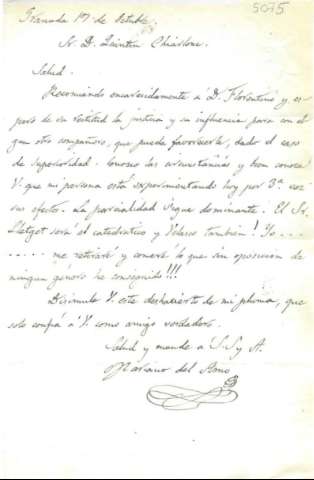 5075
Granada 17 de Octubre.
Sr. D. Quintin Chiarlone.
Salud.
Recomiendo encarecidamente á D. Florentino y, es
pero de su rectitud la justicia y su influencia para con al
gun otro compañero, que pueda favorecerle, dado el caso
de superioridad. las circunstancias y bien conoce
V. que mi persona está experimentando hoy por 3ª vez
sus efectos. La parcialidad sigue dominante. El Sr.
Lletget será el catedratico y Velasco tambien! Yo....
..... me retiraré y comeré lo que sin oposicion de
ningun genero he conseguido!!!
Disimule V. este de mi pluma, que
solo confia á V. como amigo verdadero.
Salud y mande a S. S. y A.
Mariano del Amo